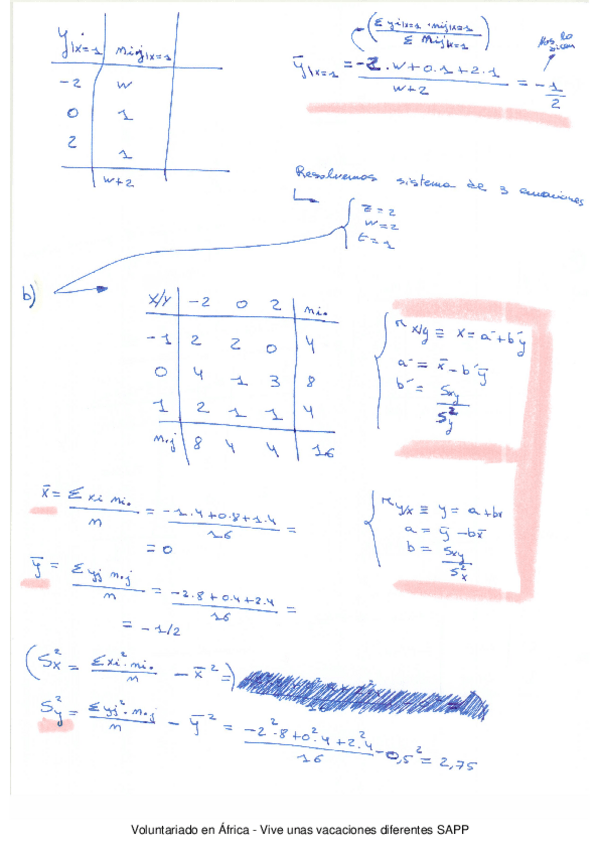 y|x=1 | nij|x=1
-2 | w
0 | 1
2 | 1
w+2
(Σ yj|x=1 · nij|x=1 / Σ nij|x=1)
ȳ|x=1 = -2·w+0·1+2·1 / w+2 = -1/2
lo
Resolvemos sistema de 3 ecuaciones
z=2
w=2
t=1
b)
x/y | -2 0 2 | ni.
-1 | 2 2 0 | 4
0 | 4 1 3 | 8
1 | 2 1 1 | 4
n.j | 8 4 4 | 16
r x/y ≡ x = a´+b´y
a´ = x̄ - b´ȳ
b´ = Sxy / S²y
r y/x ≡ y = a+bx
a = ȳ - bx̄
b = Sxy / S²x
x̄ = Σ xi ni. / n = -1·4+0·8+1·4 / 16 =
= 0
ȳ = Σ yj n.j / n = -2·8+0·4+2·4 / 16 =
= -1/2
(S²x = Σ xi²·ni. / n - x̄² =)
S²y = Σ yj²·n.j / n - ȳ² = -2²·8+0²·4+2²·4 / 16 - 0,5² = 2,75
Voluntariado en África - Vive unas vacaciones diferentes SAPP